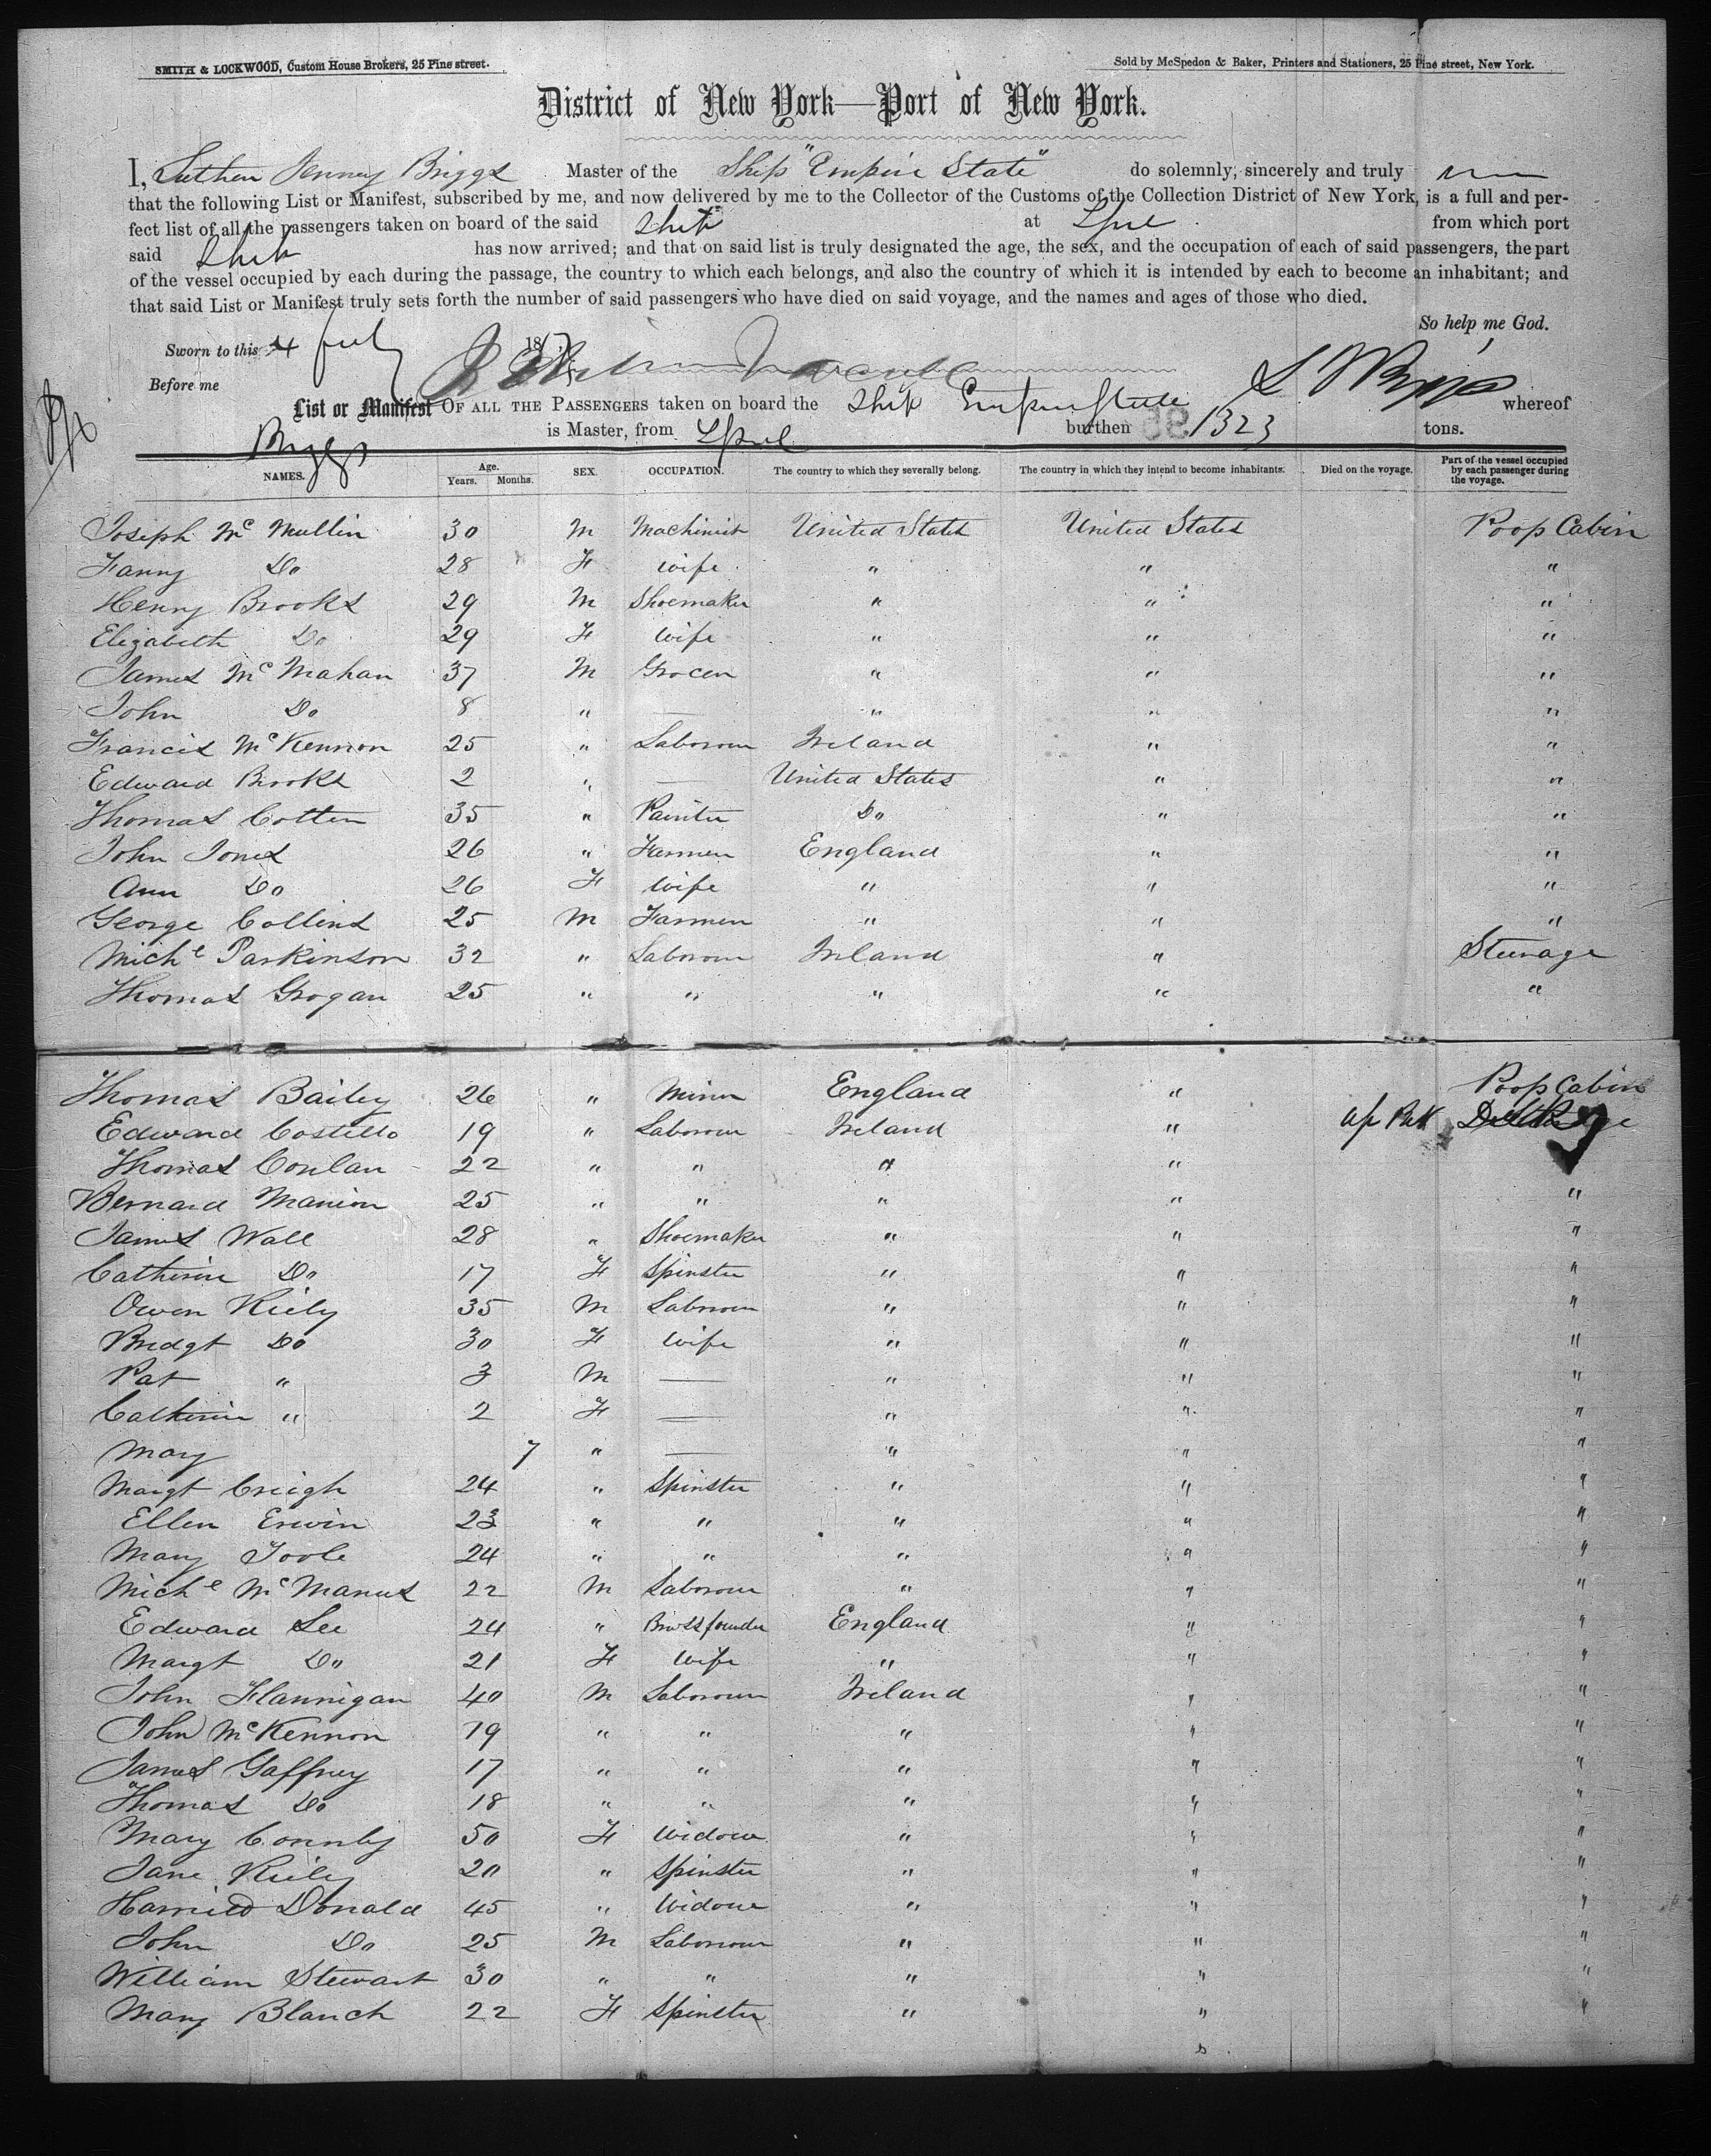 SMITH & LOCKWOOD, Custom House Brokers, 25 Pine street.
Sold by McSpedon & Baker, Printers and Stationers, 25 Pine street, New York.
District of New York—Port of New York.
I, Luther Jenney Briggs Master of the Ship "Empire State" do solemnly, sincerely and truly
that the following List or Manifest, subscribed by me, and now delivered by me to the Collector of the Customs of the Collection District of New York, is a full and per-
fect list of all the passengers taken on board of the said Ship at Lpul from which port
said Ship has now arrived; and that on said list is truly designated the age, the sex, and the occupation of each of said passengers, the part
of the vessel occupied by each during the passage, the country to which each belongs, and also the country of which it is intended by each to become an inhabitant; and
that said List or Manifest truly sets forth the number of said passengers who have died on said voyage, and the names and ages of those who died.
So help me God.
Sworn to this 4 July 18
Before me
L J Briggs
List or Manifest OF ALL THE PASSENGERS taken on board the Ship Empire State whereof
Briggs is Master, from Lpul burthen 1323 tons.
NAMES. Age. Years. Months. SEX. OCCUPATION. The country to which they severally belong. The country in which they intend to become inhabitants. Died on the voyage. Part of the vessel occupied by each passenger during the voyage.
Joseph Mc Mullin 30 M Machinist United States United States Poop Cabin
Fanny Do 28 F Wife " " "
Henry Brooks 29 M Shoemaker " " "
Elizabeth Do 29 F Wife " " "
James Mc Mahan 37 M Grocer " " "
John Do 8 " — " " "
Francis McKennon 25 " Laborour Ireland " "
Edward Brooks 2 " — United States " "
Thomas Cotten 35 " Painter Do " "
John Jones 26 " Farmer England " "
Ann Do 26 F Wife " " "
George Collins 25 M Farmer " " "
Michl Parkinson 32 " Laborour Ireland " Steerage
Thomas Grogan 25 " " " " "
Thomas Bailey 26 " Miner England " Poop Cabin
Edward Costello 19 " Laborour Ireland "
Thomas Conlan 22 " " " "
Bernard Manion 25 " " " " "
James Wall 28 " Shoemaker " " "
Catherine Do 17 F Spinster " " "
Owen Kiely 35 M Laborour " " "
Bridgt Do 30 F Wife " " "
Pat " 3 M — " " "
Catherine " 2 F — " " "
Mary 7 " — " " "
Margt Creigh 24 " Spinster " " "
Ellen Erwin 23 " " " " "
Mary Toole 24 " " " " "
Michl McManus 22 M Laborour " " "
Edward Lee 24 " Brassfounder England " "
Margt Do 21 F Wife " " "
John Flannigan 40 M Laborour Ireland " "
John McKennon 19 " " " " "
James Gaffney 17 " " " " "
Thomas Do 18 " " " " "
Mary Connly 50 F Widow " " "
Jane Kiely 20 " Spinster " " "
Donald 45 " Widow " " "
John Do 25 M Laborour " " "
William Stewart 30 " " " " "
Mary Blanch 22 F Spinster " " "